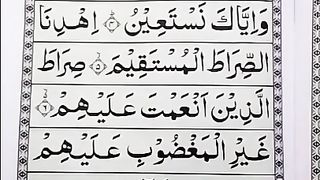 وَاِيَّاكَ نَسْتَعِيْنُ ۝۴ اِهْدِنَا
الصِّرَاطَ الْمُسْتَقِيْمَ ۝۵ صِرَاطَ
الَّذِيْنَ اَنْعَمْتَ عَلَيْهِمْ ۝۶
غَيْرِ الْمَغْضُوْبِ عَلَيْهِمْ